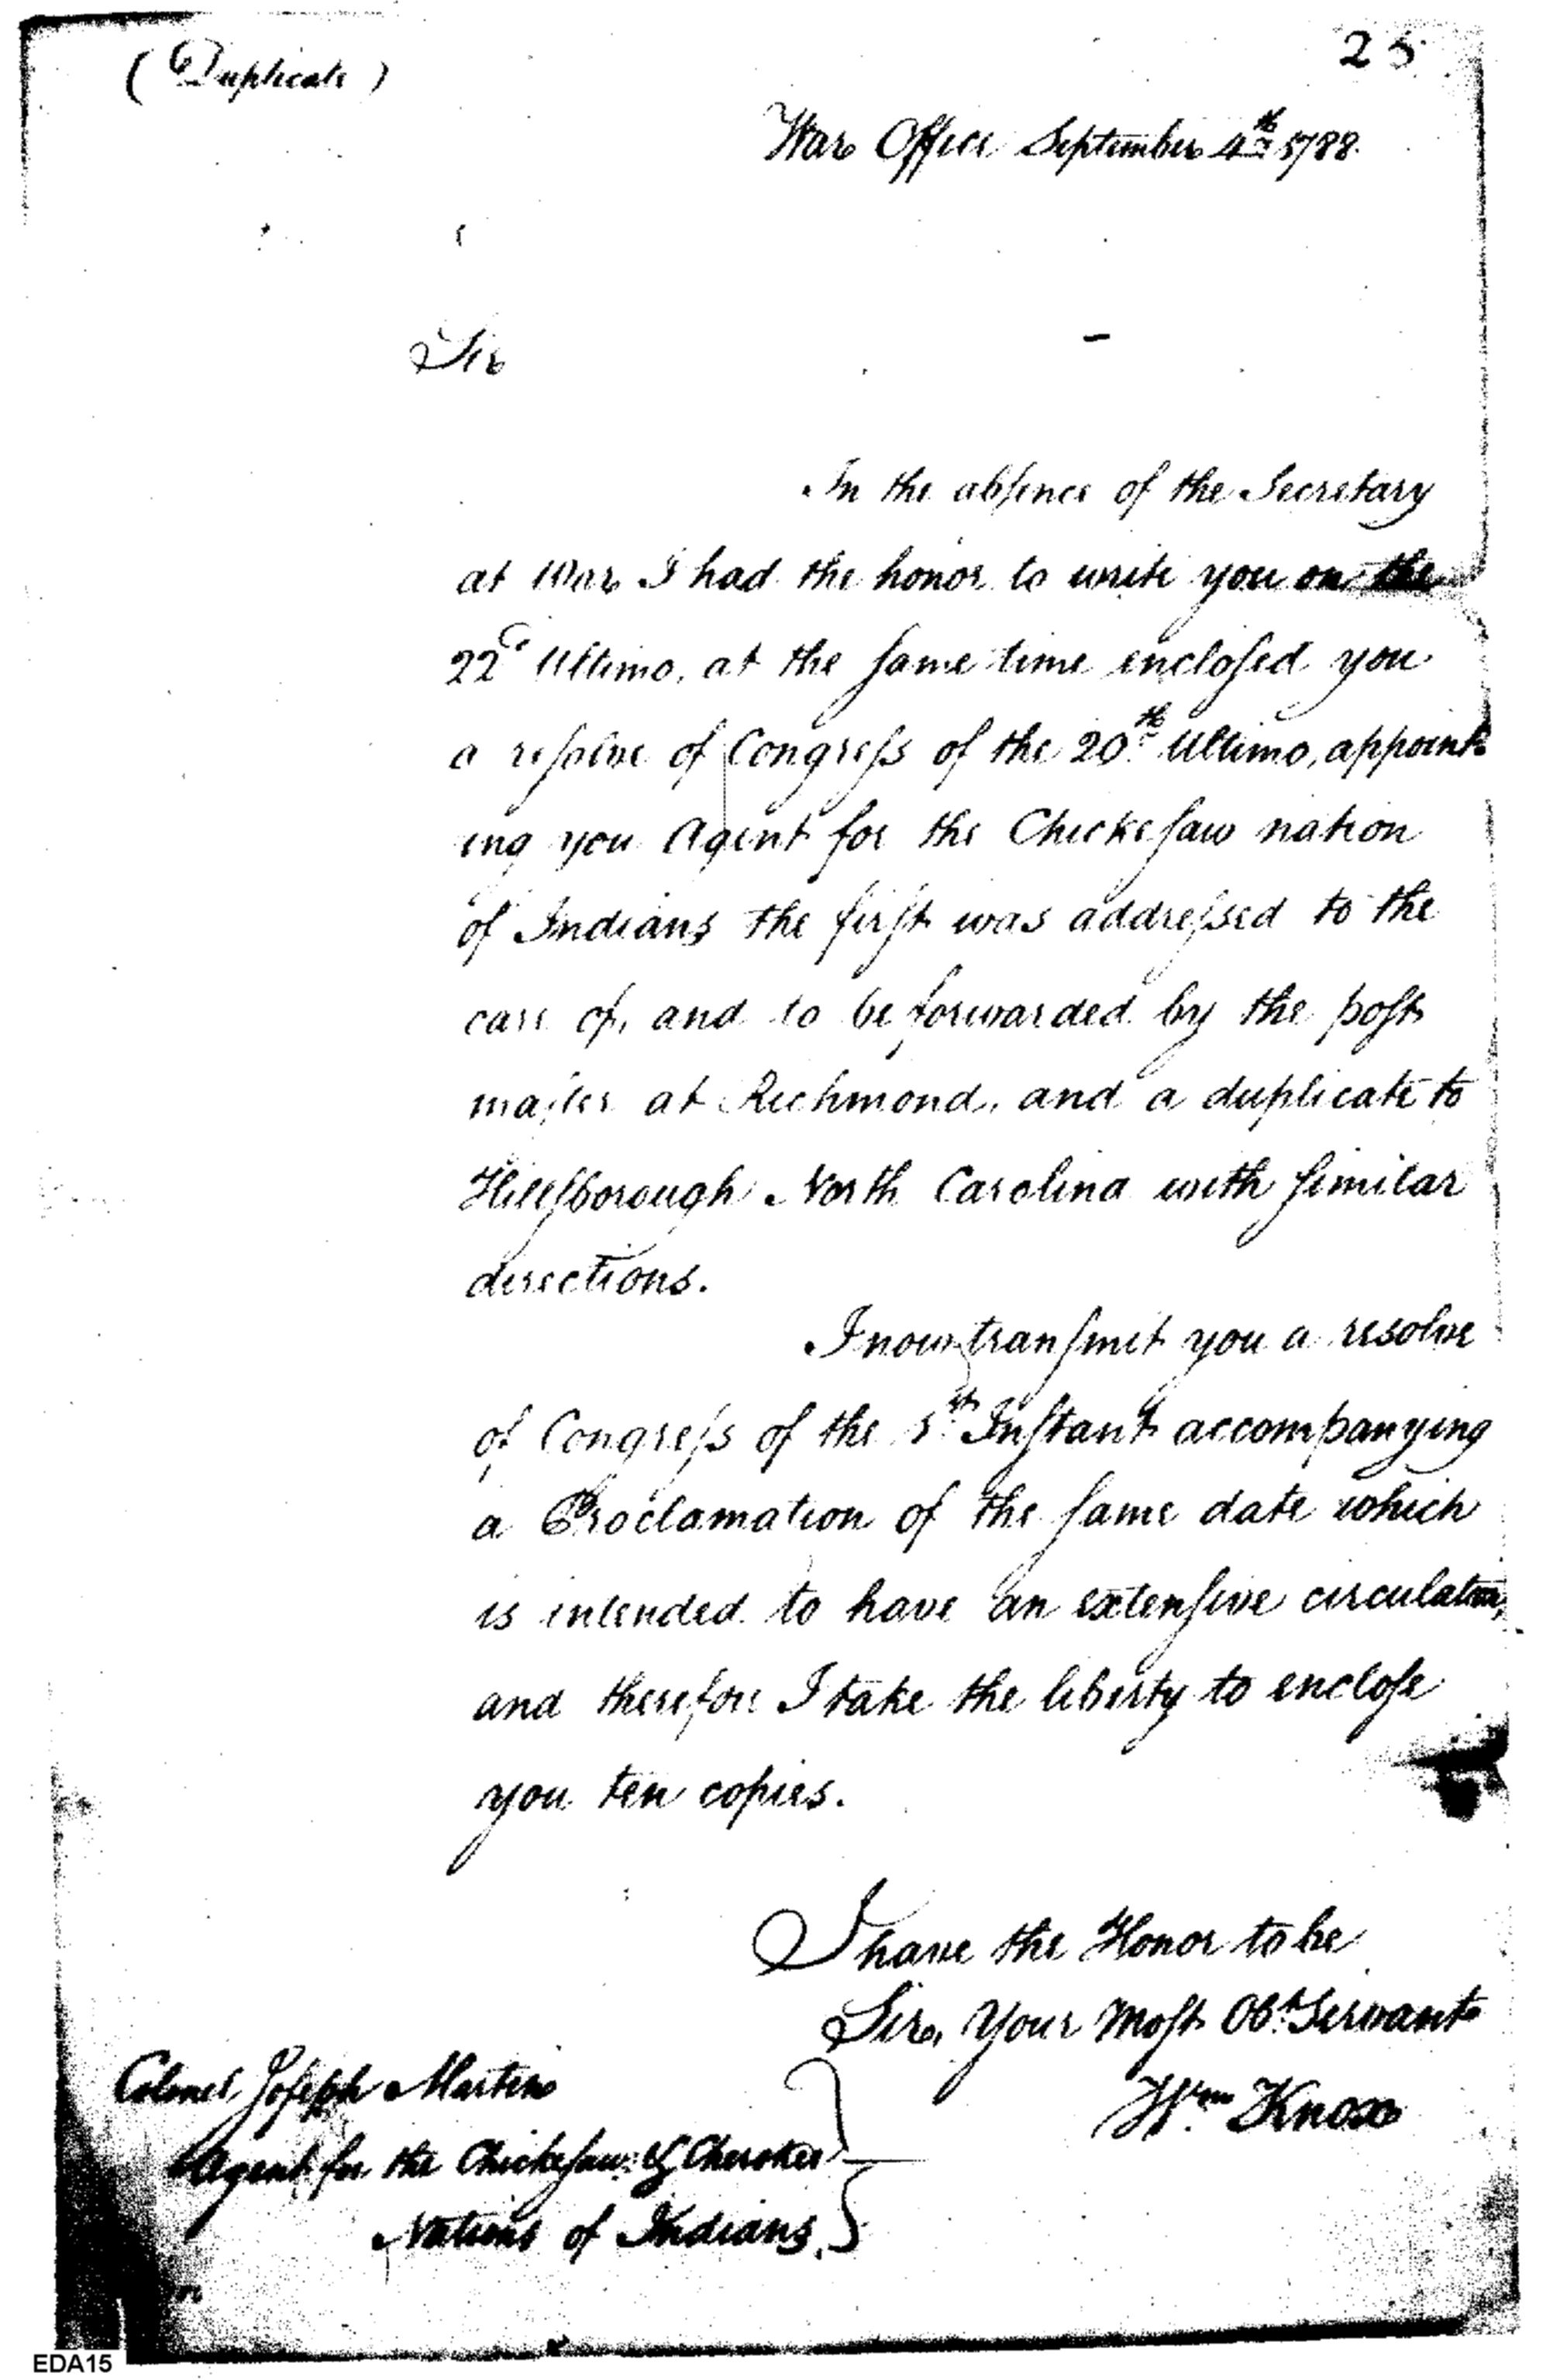 (Duplicate)
25
War Office September 4th 1788.
Sir
In the absence of the Secretary
at War I had the honor to write you on the
22d Ultimo, at the same time enclosed you
a resolve of Congress of the 20th Ultimo, appoint-
ing you Agent for the Chickesaw nation
of Indians the first was addressed to the
care of, and to be forwarded by the post
master at Richmond, and a duplicate to
Hillsborough North Carolina with similar
directions.
I now transmit you a resolve
of Congress of the 1st Instant accompanying
a Proclamation of the same date which
is intended to have an extensive circulation,
and therefore I take the liberty to enclose
you ten copies.
I have the Honor to be
Sir, Your Most Obt Servant
Wm Knox
Colonel Joseph Martin
Agent for the Chickesaw & Cherokee
Nations of Indians.
EDA15